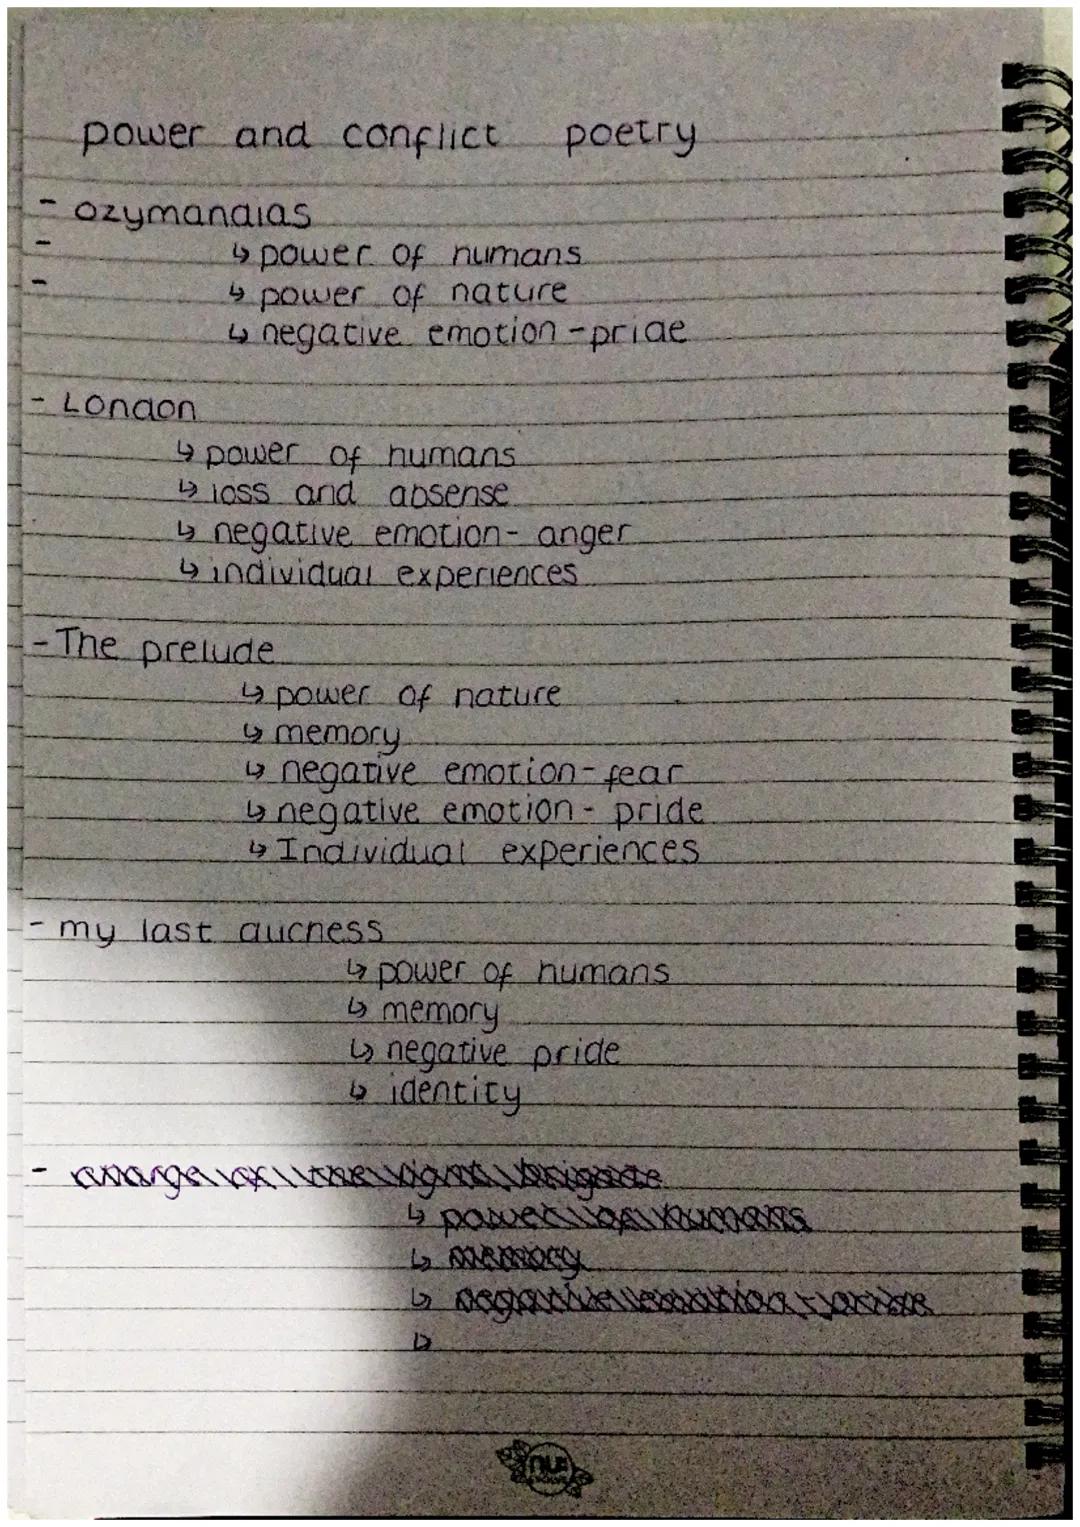 power and conflict poetry
- ozymandias
-
↳ power of humans
-
↳ power of nature
↳ negative emotion - pride
- London
↳ power of humans
↳ loss and absense
↳ negative emotion - anger
↳ individual experiences
- The prelude
↳ power of nature
↳ memory
↳ negative emotion - fear
↳ negative emotion - pride
↳ Individual experiences
- my last duchess
↳ power of humans
↳ memory
↳ negative pride
↳ identity
- charge of the light brigade
↳ power of humans
↳ memory
↳ negative emotion - pride
↳